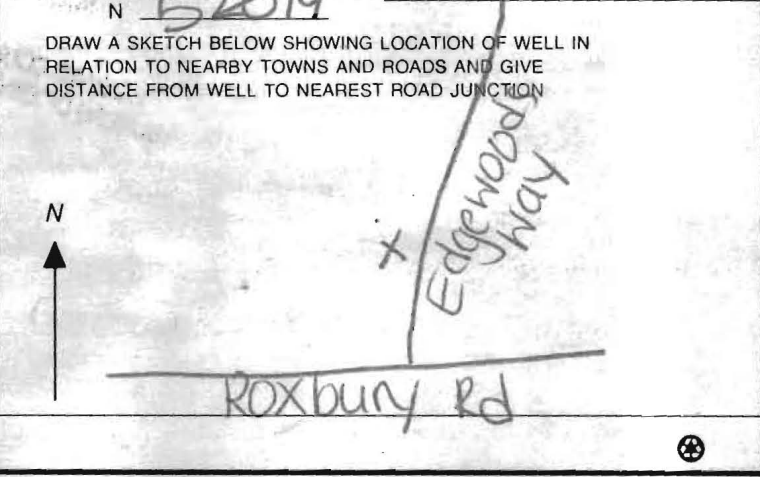 N
DRAW A SKETCH BELOW SHOWING LOCATION OF WELL IN
RELATION TO NEARBY TOWNS AND ROADS AND GIVE
DISTANCE FROM WELL TO NEAREST ROAD JUNCTION
Edgewoods
Way
N
X
Roxbury Rd